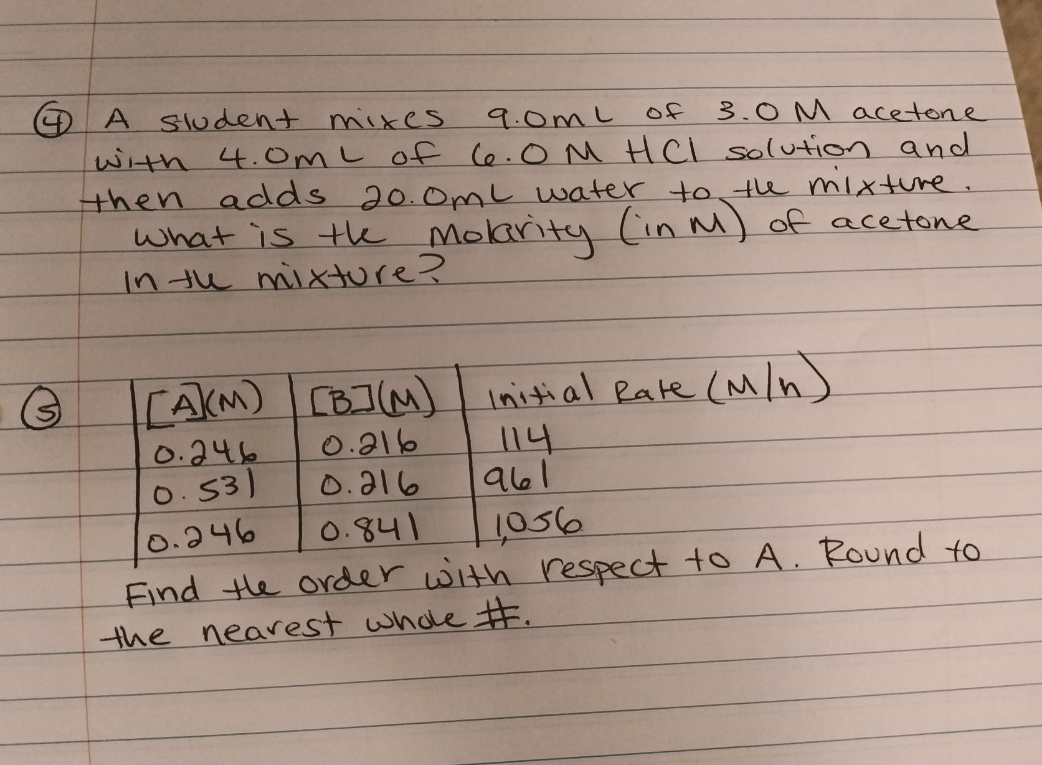 ④ A student mixes 9.0mL of 3.0 M acetone
with 4.0mL of 6.0 M HCl solution and
then adds 20.0mL water to the mixture.
What is the Molarity (in M) of acetone
in the mixture?
⑤ [A](M) [B](M) Initial Rate (M/h)
0.246 0.216 114
0.531 0.216 961
0.246 0.841 1,056
Find the order with respect to A. Round to
the nearest whole #.